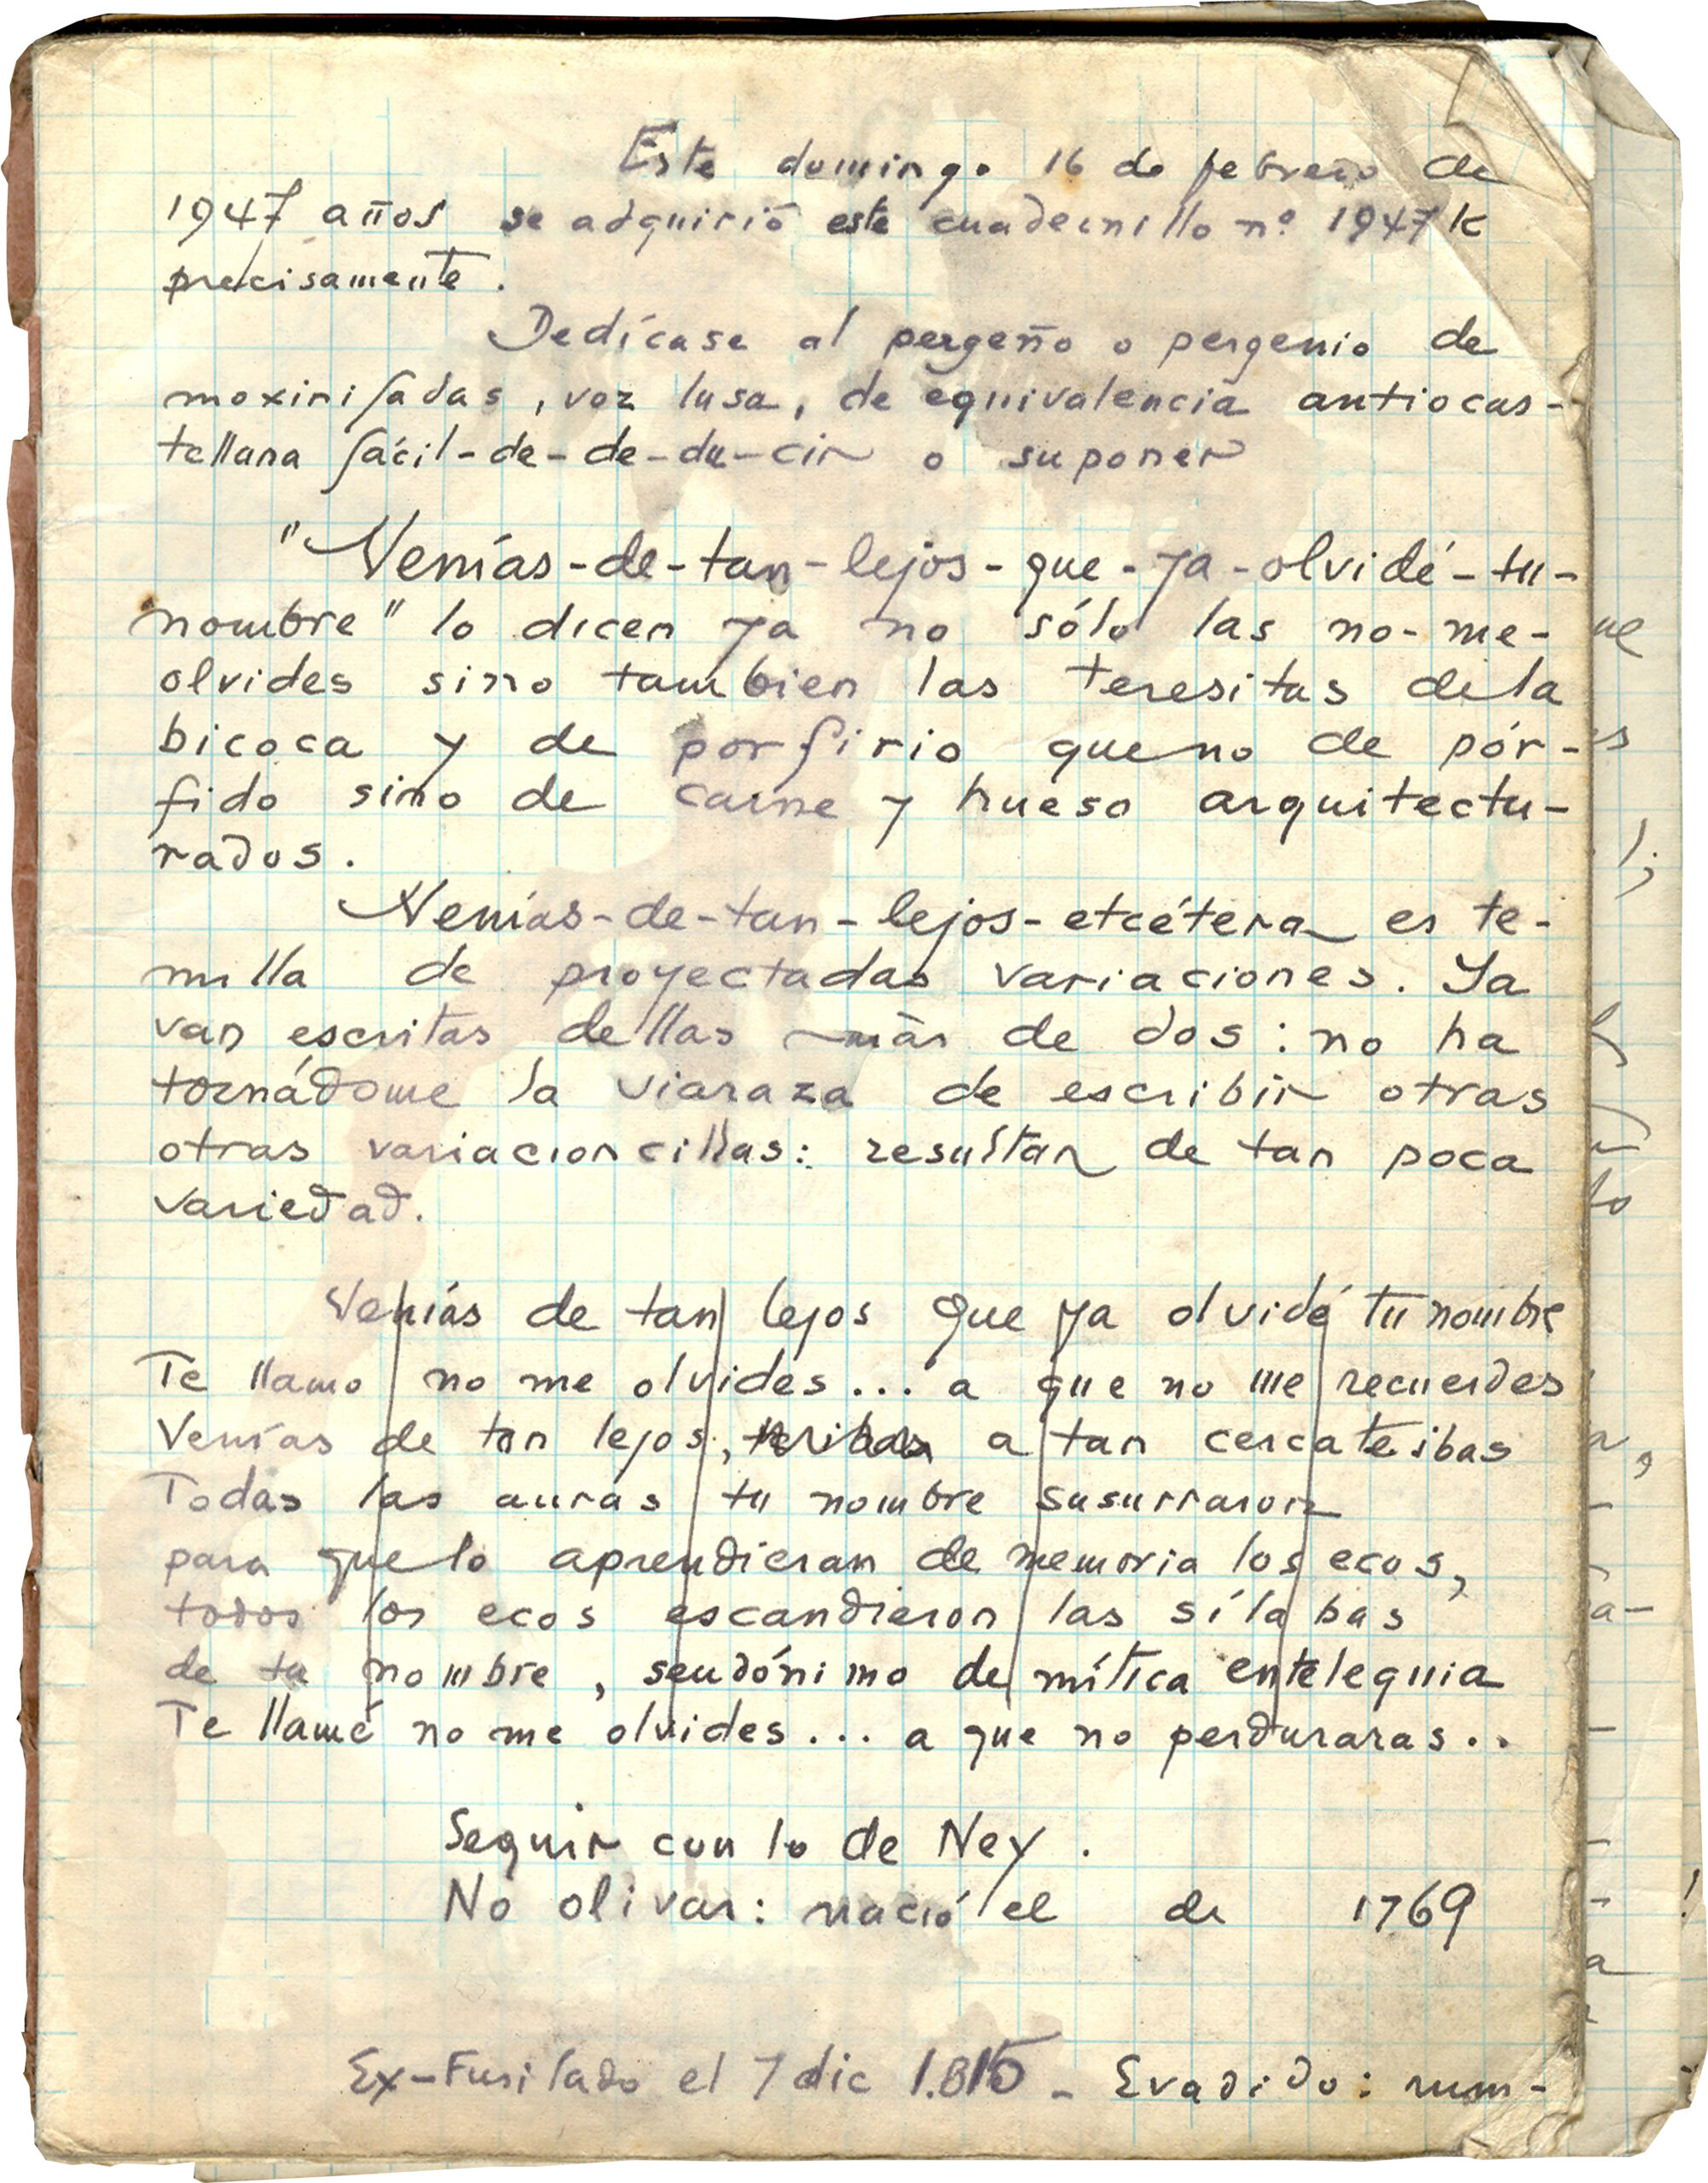 Este domingo 16 de febrero de
1947 años se adquirió este cuadernillo nº 1947 K
precisamente.
Dedícase al pergeño o pergenio de
moxinifadas, voz lusa, de equivalencia antiocas-
tellana fácil-de-de-du-cir o suponer
"Venías-de-tan-lejos-que-ya-olvidé-tu-
nombre" lo dicen ya no sólo las no-me-
olvides sino tambien las teresitas de la
bicoca y de porfirio que no de pór-
fido sino de carne y hueso arquitectu-
rados.
Venías-de-tan-lejos-etcétera es te-
milla de proyectadas variaciones. Ya
van escritas dellas más de dos: no ha
tornádome la viaraza de escribir otras
otras variacioncillas: resultan de tan poca
variedad.
Venías de tan lejos que ya olvidé tu nombre
Te llamo no me olvides... a que no me recuerdes
Venías de tan lejos, a tan cerca te ibas
Todas las auras tu nombre susurraron
para que lo aprendieran de memoria los ecos,
todos los ecos escandieron las sílabas
de tu nombre, seudónimo de mítica entelequia
Te llamé no me olvides... a que no perduraras..
Seguir con lo de Ney.
No olivar: nació el de 1769
Ex-Fusilado el 7 dic 1.815 - Evadido: rum-